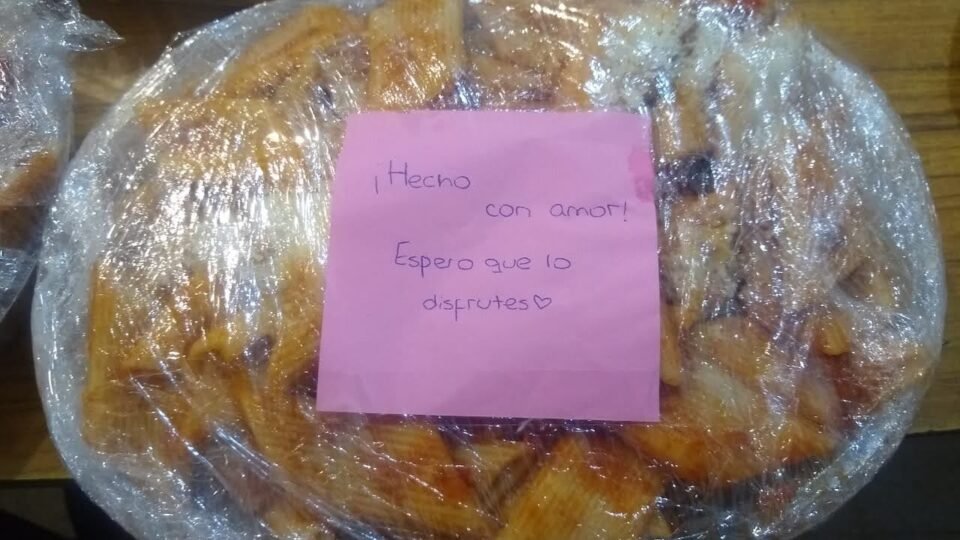 ¡Hecho
con amor!
Espero que lo
disfrutes♡